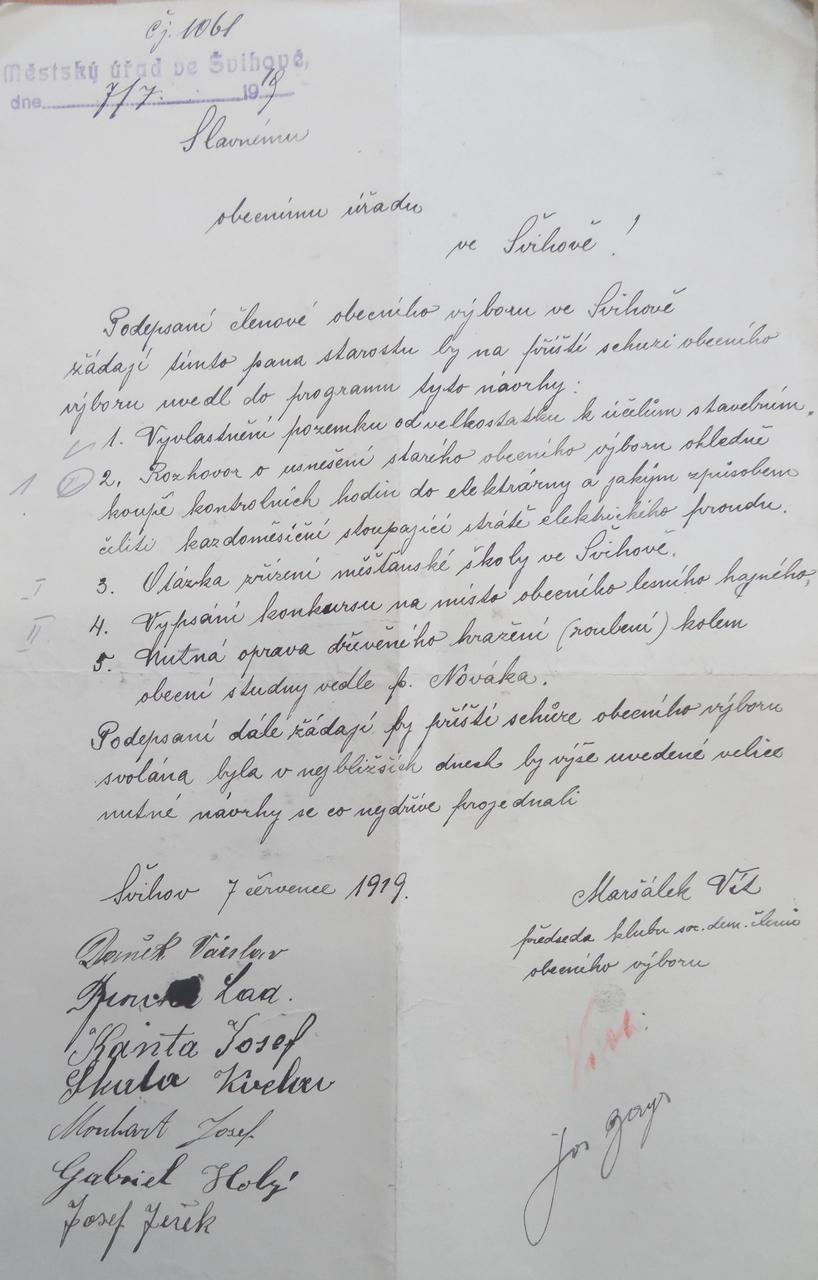 čj. 1061
Městský úřad ve Švihově,
dne 7/7. 1919
Slavnému
obecnímu úřadu
ve Švihově!
Podepsaní členové obecního výboru ve Švihově
žádají tímto pana starostu by na příští schuzi obecního
výboru uvedl do programu tyto návrhy:
1. Vyvlastnění pozemku od velkostatku k účelům stavebním.
1 I 2. Rozhovor o usnešení starého obecního výboru ohledně
koupě kontrolních hodin do elektrárny a jakým způsobem
čeliti každoměsíční stoupající strátě elektrického proudu.
I 3. Otázka zřízení měšťanské školy ve Švihově.
II 4. Vypsání konkursu na místo obecního lesního hajného,
5. Nutná oprava dřevěného hražení (roubení) kolem
obecní studny vedle p. Nováka.
Podepsaní dále žádají by příští schůze obecního výboru
svolána byla v nejbližších dnech by výše uvedené velice
nutné návrhy se co nejdříve projednali
Švihov 7 července 1919.
Maršálek Vít
předseda klubu soc. dem. členů
obecního výboru
Daněk Václav
Lad.
Kanta Josef
Skala
Monhart Josef
Gabriel Holý
Josef Ješek
Jos